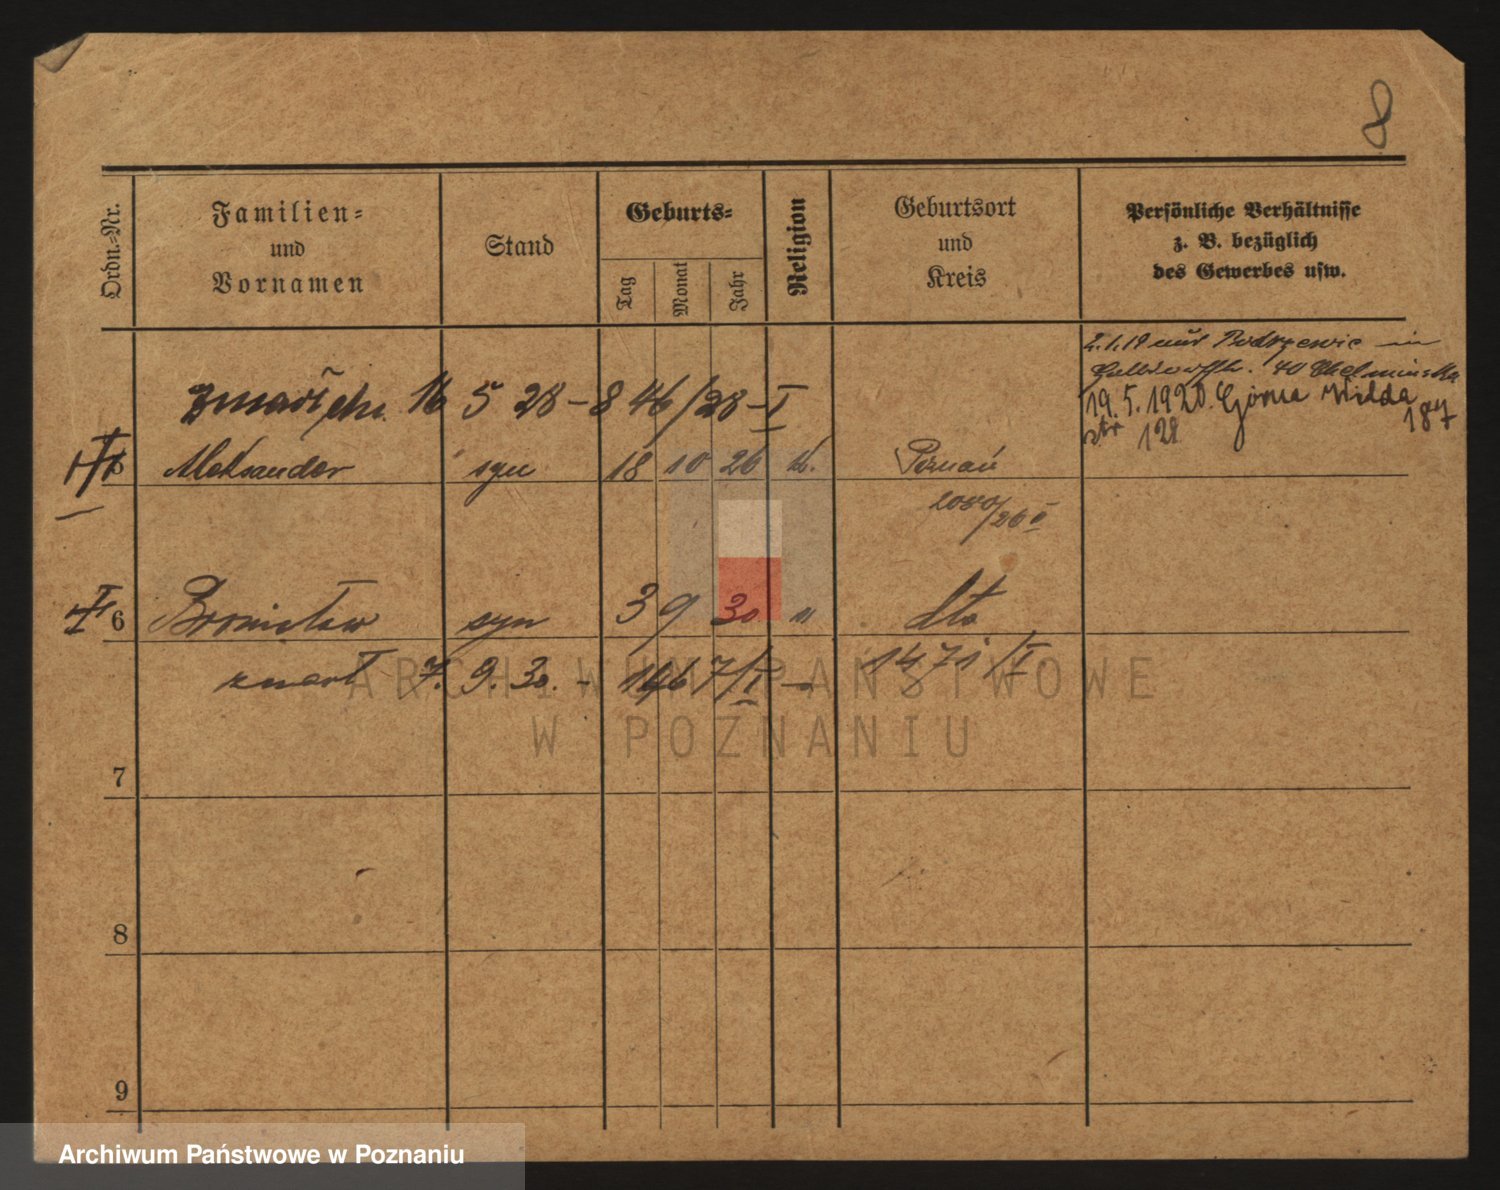 8
Ordn.-Nr.
Familien-
und
Vornamen
Stand
Geburts-
Tag
Monat
Jahr
Religion
Geburtsort
und
Kreis
Persönliche Verhältnisse
z. B. bezüglich
des Gewerbes usw.
2.1.19 aus in
40
19.5.1920. Górna Wilda
str 128 187
16 5 28 - 8 46/28 - I
Aleksander syn 18 10 26 k. Poznań
2080/26 II
6 Bronisław syn 3 9 30 " dto
zmarł 7. 9. 30. - 1467/I - 1471/I
7
8
9
ARCHIWUM PAŃSTWOWE
W POZNANIU
Archiwum Państwowe w Poznaniu